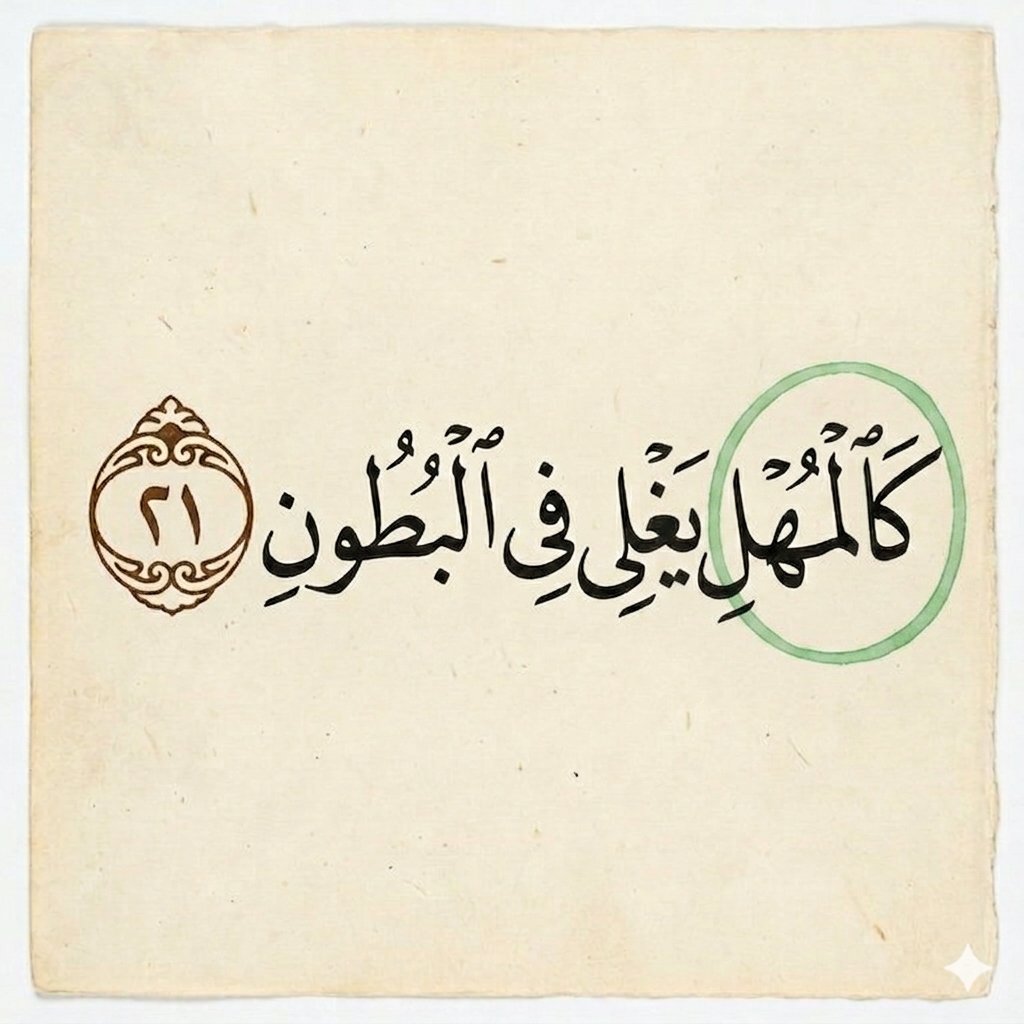 كَٱلْمُهْلِ يَغْلِي فِي ٱلْبُطُونِ ٢١